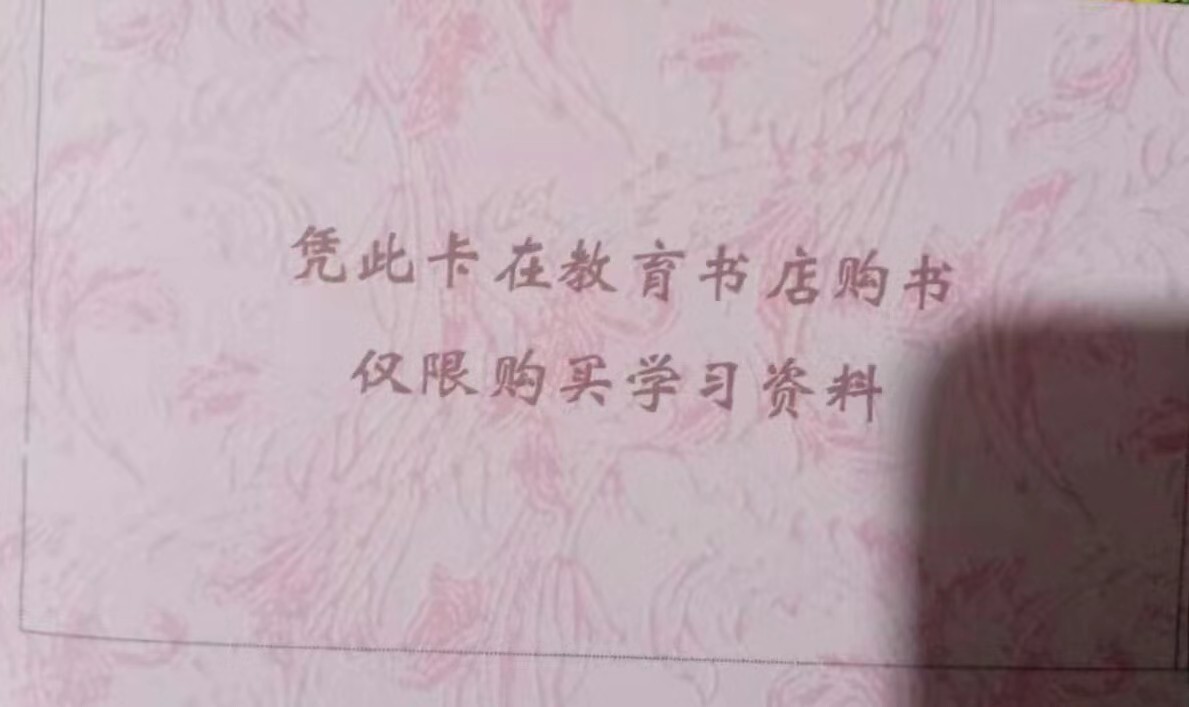 凭此卡在教育书店购书
仅限购买学习资料